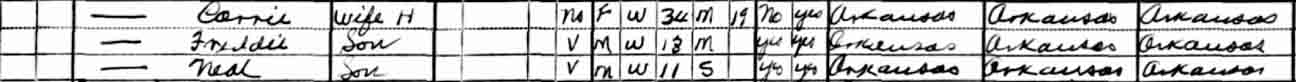 — Carrie Wife H No F W 34 M 19 No yes Arkansas Arkansas Arkansas
— Freddie Son V M W 13 M yes yes Arkansas Arkansas Arkansas
— Neal Son V M W 11 S yes yes Arkansas Arkansas Arkansas